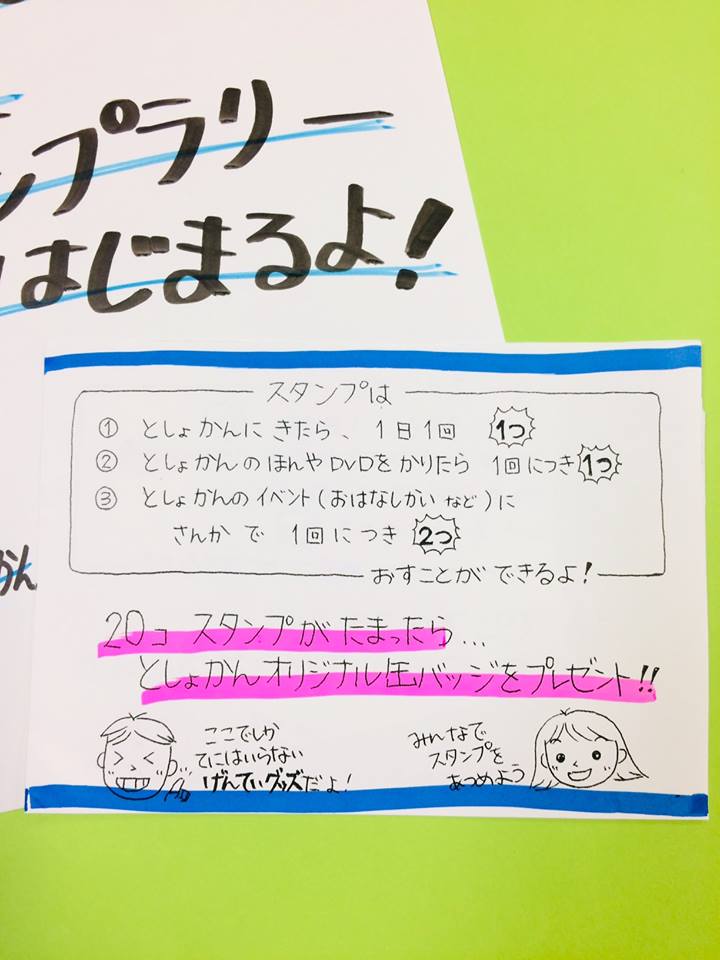 ンプラリー
はじまるよ!
かん
スタンプは
① としょかんに きたら、 1日1回 1つ
② としょかんの ほんや DVDを かりたら 1回につき 1つ
③ としょかんの イベント(おはなしかい など)に
さんか で 1回 につき 2つ
おすことが できるよ!
20コ スタンプが たまったら...
としょかんオリジナル缶バッジをプレゼント!!
ここでしか
てにはいらない
げんていグッズだよ!
みんなで
スタンプを
あつめよう